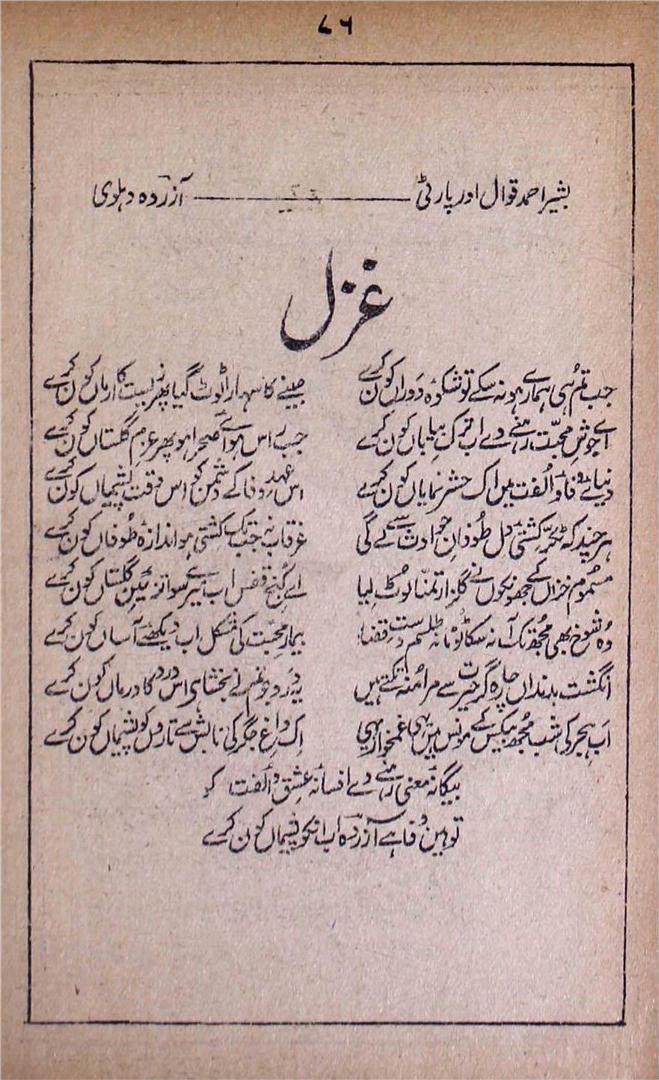 ۷۶
بشیر احمد قوال اور پارٹی ——— آزردہ دہلوی
غزل
جب تم ہی ہمارے ہو نہ سکے تو شکوۂ دوراں کون کرے جینے کا سہارا ٹوٹ گیا پھر زیست کا ارماں کون کرے
اے جوشِ محبت رہنے دے اب ترکِ بیاباں کون کرے جب اس ہوائے صحرا ہو پھر عزمِ گلستاں کون کرے
دنیائے وفا و الفت میں اک حشر نمایاں کون کرے اس عہدِ وفا کے دشمن کو اس وقت پشیماں کون کرے
ہر چند کہ ٹکر کشتی دل طوفانِ حوادث سے لے گی غرقاب نہ جب تک کشتی ہو اندازۂ طوفاں کون کرے
مسموم خزاں کے جھونکوں نے گلزارِ تمنا لوٹ لیا اے کنجِ قفس اب تیرے سوا تزئینِ گلستاں کون کرے
وہ شوخ بھی مجھ تک آ نہ سکا ٹوٹا نہ طلسم دستِ قضا بیمارِ محبت کی مشکل اب دیکھئے آساں کون کرے
انگشت بدنداں چارہ گر حیرت سے مرا منہ تکتے ہیں یہ درد جو تم نے بخشا ہے اس درد کا درماں کون کرے
اب ہجر کی شب مجھ بیکس کے مونس ہیں یہی غمخوار یہی اک داغِ جگر کی تابش سے تاروں کو پشیماں کون کرے
بیگانۂ معنی رہنے دے افسانۂ عشق و الفت کو
توہینِ وفا ہے آزردہ اب انکو پشیماں کون کرے